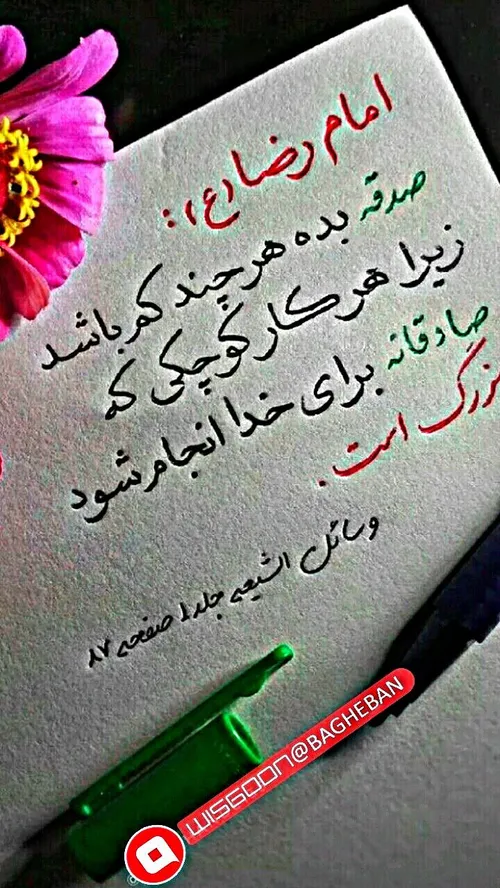 امام رضا (ع):
صدقه بده هر چند کم باشد
زیرا هر کار کوچکی که
صادقانه برای خدا انجام شود
بزرگ است.
وسائل الشیعه جلد ۱ صفحه ۸۷
WISGOON@BAGHEBAN